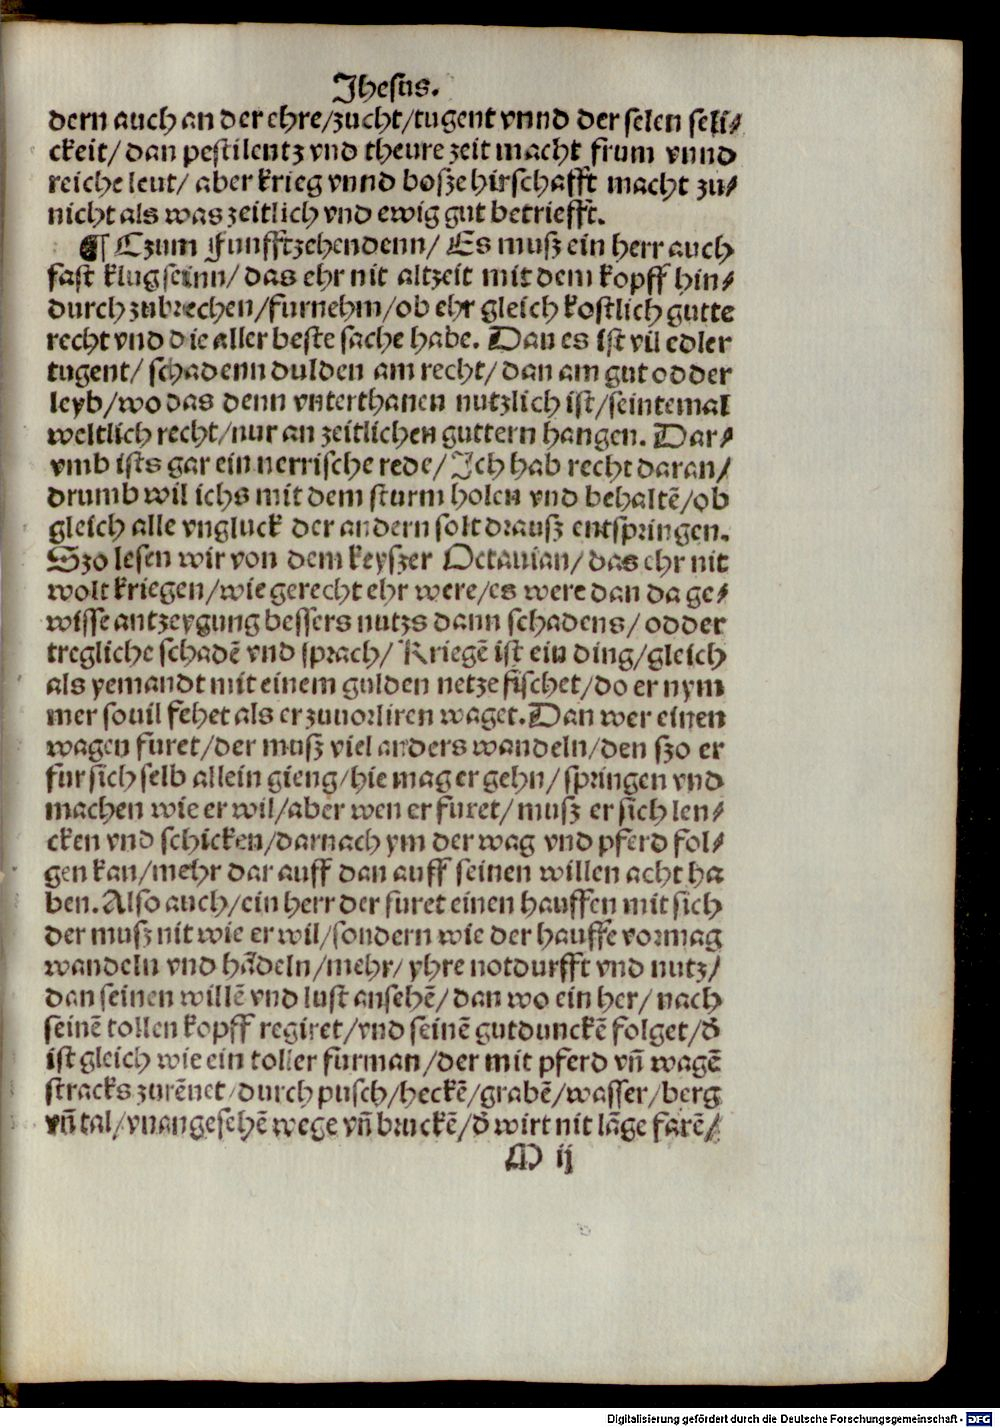 Jhesus.
dern auch an der ehre/zucht/tugent vnnd der selen seli⸗
ckeit/ dan pestilentz vnd theure zeit macht frum vnnd
reiche leut/ aber krieg vnnd bosze hirschafft macht zu⸗
nicht als was zeitlich vnd ewig gut betriefft.
¶ Czum Funfftzehendenn/ Es musz ein herr auch
fast klug seinn/ das ehr nit altzeit mit dem kopff hin⸗
durch zubrechen/furnehm/ob ehr gleich kostlich gutte
recht vnd die aller beste sache habe. Dan es ist vil edler
tugent/ schadenn dulden am recht/ dan am gut odder
leyb/wo das denn vnterthanen nutzlich ist/seintemal
weltlich recht/nur an zeitlichen guttern hangen. Dar⸗
vmb ists gar ein nerrische rede/ Ich hab recht daran/
drumb wil ichs mit dem sturm holen vnd behaltē/ob
gleich alle vngluck der andern solt drausz entspringen.
Szo lesen wir von dem keyszer Octauian/ das ehr nit
wolt kriegen/wie gerecht ehr were/es were dan da ge⸗
wisse antzeygung bessers nutzs dann schadens/ odder
tregliche schadē vnd sprach/ Kriegē ist ein ding/gleich
als yemandt mit einem gulden netze fischet/do er nym
mer souil fehet als er zuuorliren waget. Dan wer einen
wagen furet/der musz viel anders wandeln/den szo er
fur sich selb allein gieng/hie mag er gehn/ springen vnd
machen wie er wil/aber wen er furet/ musz er sich len⸗
cken vnd schicken/darnach ym der wag vnd pferd fol⸗
gen kan/mehr dar auff dan auff seinen willen acht ha
ben. Also auch/ein herr der furet einen hauffen mit sich
der musz nit wie er wil/sondern wie der hauffe vormag
wandeln vnd hādeln/mehr/ yhre notdurfft vnd nutz/
dan seinen willē vnd lust ansehē/ dan wo ein her/ nach
seinē tollen kopff regiret/vnd seinē gutdunckē folget/d̄
ist gleich wie ein toller furman/der mit pferd vn̄ wagē
stracks zurēnet/durch pusch/heckē/grabē/wasser/berg
vn̄ tal/vnangesehē wege vn̄ bruckē/d̄ wirt nit lāge farē/
M ij
Digitalisierung gefördert durch die Deutsche Forschungsgemeinschaft - DFG